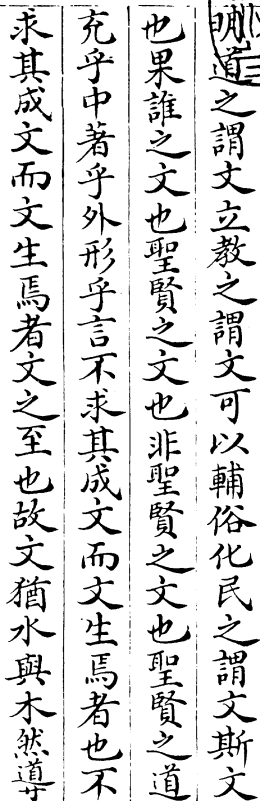 明道之謂文立教之謂文可以輔俗化民之謂文斯文
也果誰之文也聖賢之文也非聖賢之文也聖賢之道
充乎中著乎外形乎言不求其成文而文生焉者也不
求其成文而文生焉者文之至也故文猶水與木然導